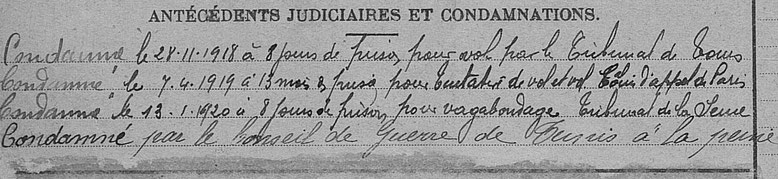 ANTÉCÉDENTS JUDICIAIRES ET CONDAMNATIONS.
Condamné le 28-11-1918 à 8 jours de prison pour vol par le Tribunal de Tours
Condamné " le 7-4-1919 à 13 mois de prison pour tentative de vol et vol Cour d'appel de Paris
Condamné " le 13-1-1920 à 8 jours de prison pour vagabondage Tribunal de la Seine
Condamné par le Conseil de Guerre de Tunis à la peine